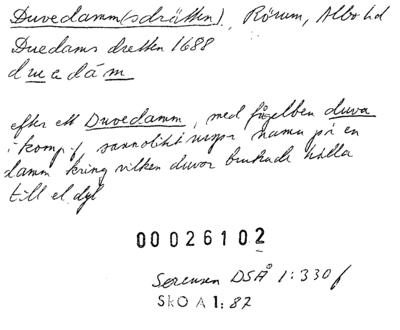 Duvedamm(sdrätten), Rörum, Albo hd
Duedams dretten 1688
duedám
efter ett Duvedamm, med fågelben duva
i komp. f, sannolikt urspr namn på en
damm kring vilken duvor brukade hålla
till el. dyl
00026102
Sørensen DSÅ 1:330 f
SkO A 1: 87